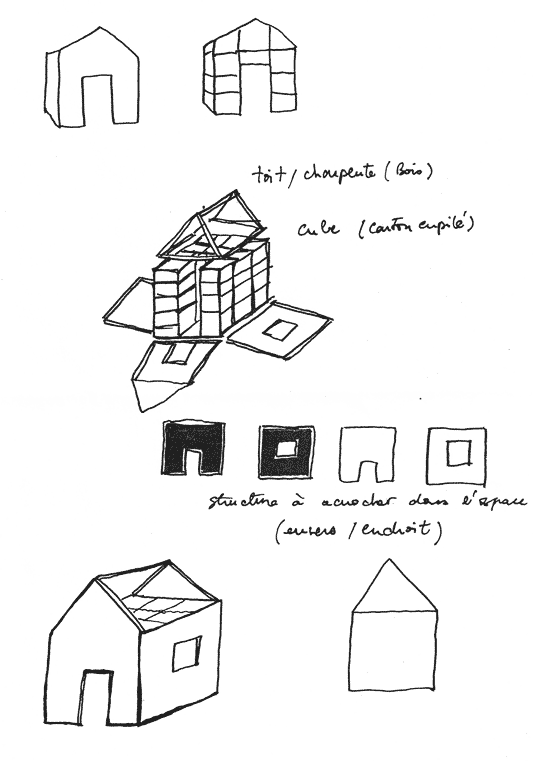 toit / charpente (Bois)
cube / (carton empilé)
structure à accrocher dans l'espace
(envers / endroit)